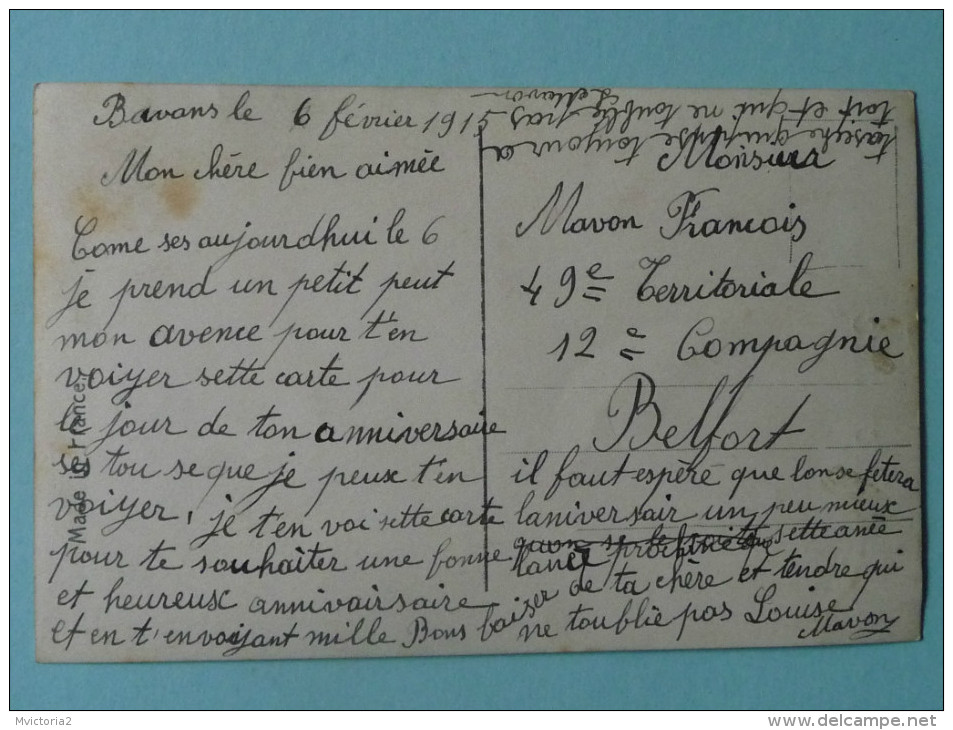 Bavans le 6 février 1915
Mon chère bien aimée
Come ses aujourdhui le 6
je prend un petit peut
mon avence pour t'en
voiyer sette carte pour
le jour de ton anniversaire
ses tou se que je peux t'en
voiyer, je t'en voi sette carte
pour te souhaiter une bonne
et heureux annivairsaire
et en t'envoyant mille Bons baiser
de ta chère et tendre qui
ne toublie pas Louise
Mavon
Monsieur
Mavon Francois
49e Territoriale
12e Compagnie
Belfort
il faut espère que lon se fetera
laniversair un peu mieux
lanée prochaine que sette anée
toujours a
toit et qui ne toublie pas
L Mavon
Made in France
Mvictoria2
www.delcampe.net